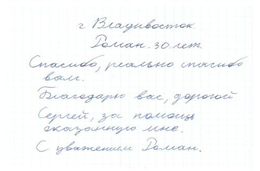 г. Владивосток
Роман. 30 лет
Спасибо, реально спасибо
вам.
Благодарю вас, дорогой
Сергей, за помощь
оказанную мне.
С уважением Роман.